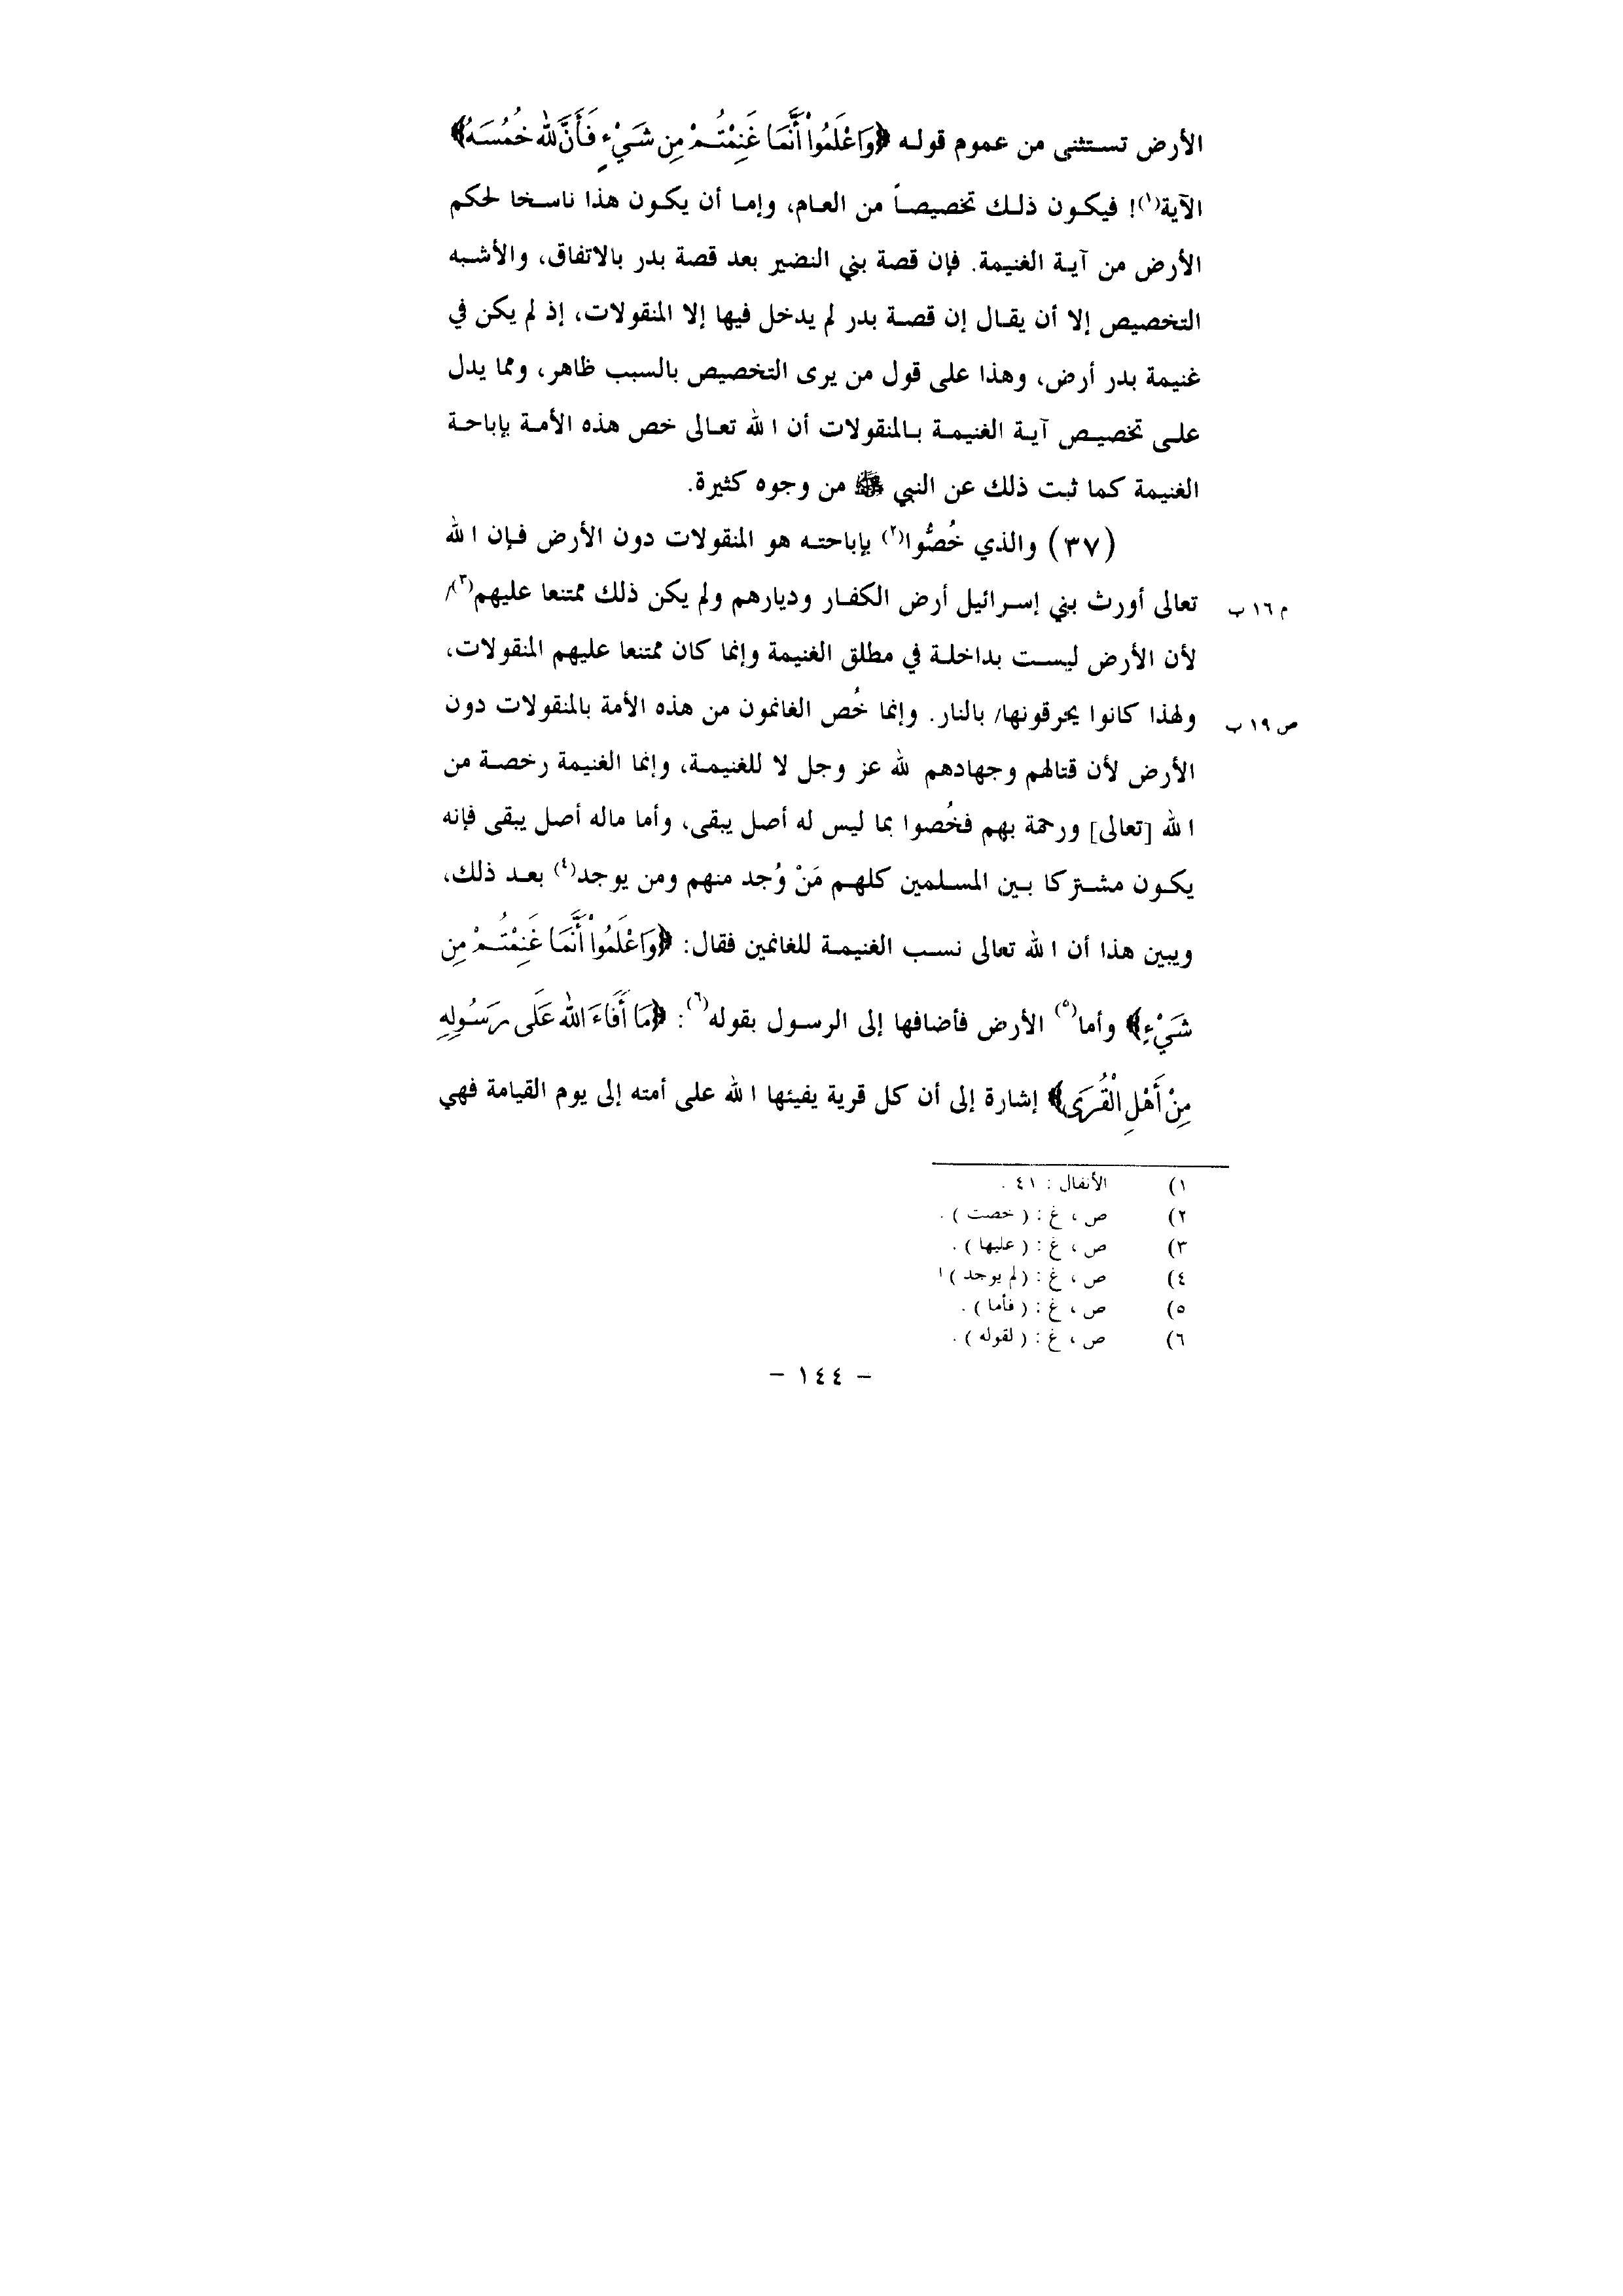 الأرض تستثنى من عموم قوله ﴿وَاعْلَمُواْ أَنَّمَا غَنِمْتُمْ مِن شَيْءٍ فَأَنَّ لله خُمُسَهُ﴾
الآية(١)! فيكون ذلك تخصيصاً من العام، وإما أن يكون هذا ناسخا لحكم
الأرض من آية الغنيمة. فإن قصة بني النضير بعد قصة بدر بالاتفاق، والأشبه
التخصيص إلا أن يقال إن قصة بدر لم يدخل فيها إلا المنقولات، إذ لم يكن في
غنيمة بدر أرض، وهذا على قول من يرى التخصيص بالسبب ظاهر، ومما يدل
على تخصيص آية الغنيمة بالمنقولات أن الله تعالى خص هذه الأمة بإباحة
الغنيمة كما ثبت ذلك عن النبي ﷺ من وجوه كثيرة.
(٣٧) والذي خُصُّوا(٢) بإباحته هو المنقولات دون الأرض فإن الله
تعالى أورث بني إسرائيل أرض الكفار وديارهم ولم يكن ذلك ممتنعا عليهم(٣)/
م ١٦ ب
لأن الأرض ليست بداخلة في مطلق الغنيمة وإنما كان ممتنعا عليهم المنقولات،
ولهذا كانوا يحرقونها/ بالنار. وإنما خُص الغانمون من هذه الأمة بالمنقولات دون
ص ١٩ ب
الأرض لأن قتالهم وجهادهم لله عز وجل لا للغنيمة، وإنما الغنيمة رخصة من
الله [تعالى] ورحمة بهم فخُصوا بما ليس له أصل يبقى، وأما ماله أصل يبقى فإنه
يكون مشتركا بين المسلمين كلهم مَنْ وُجد منهم ومن يوجد(٤) بعد ذلك،
ويبين هذا أن الله تعالى نسب الغنيمة للغانمين فقال: ﴿وَاعْلَمُواْ أَنَّمَا غَنِمْتُمْ مِن
شَيْءٍ﴾ وأما(٥) الأرض فأضافها إلى الرسول بقوله(٦): ﴿مَا أَفَاءَ الله عَلَى رَسُولِهِ
مِنْ أَهْلِ الْقُرَى﴾ إشارة إلى أن كل قرية يفيئها الله على أمته إلى يوم القيامة فهي
١) الأنفال : ٤١ .
٢) ص ، غ : ( خصت ) .
٣) ص ، غ : ( عليها ) .
٤) ص ، غ : ( لم يوجد ) ا
٥) ص ، غ : ( فأما ) .
٦) ص ، غ : ( لقوله ) .
- ١٤٤ -